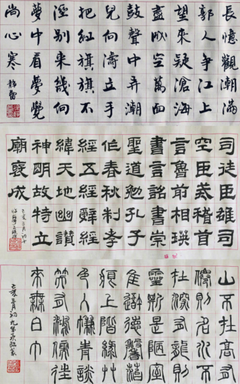 長憶觀潮滿
郭人爭江上
望來疑滄海
盡成空萬面
鼓聲中弄潮
兒向濤立手
把紅旗旗不
溼別來幾向
夢中看夢覺
尚心寒
司徒臣雄司
空臣戒稽首
言魯前相瑛
書言詔書崇
聖道勉孔子
作春秋制孝
經五經辭經
緯天地幽讚
神明故特立
廟褒成
山不在高有
仙則名水不
在深有龍則
靈斯是陋室
惟吾德馨苔
痕上階綠草
色入簾青談
笑有鴻儒往
來無白丁